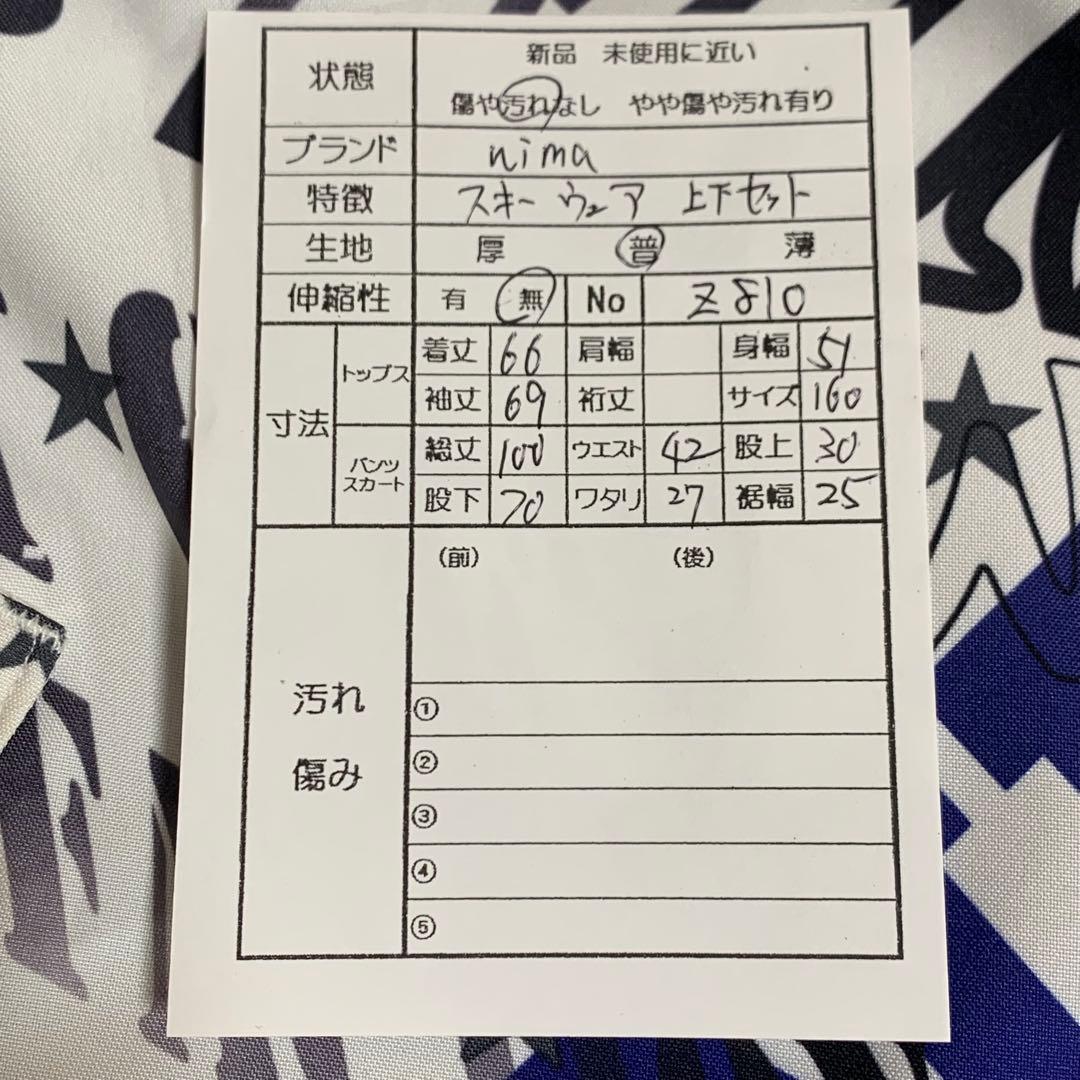 状態 新品 未使用に近い
傷や汚れなし やや傷や汚れ有り
ブランド nima
特徴 スキーウェア 上下セット
生地 厚 普 薄
伸縮性 有 無 No Z810
寸法 トップス 着丈 66 肩幅 身幅 51
袖丈 69 裄丈 サイズ 160
パンツ スカート 総丈 100 ウエスト 42 股上 30
股下 70 ワタリ 27 裾幅 25
(前) (後)
汚れ
傷み
①
②
③
④
⑤